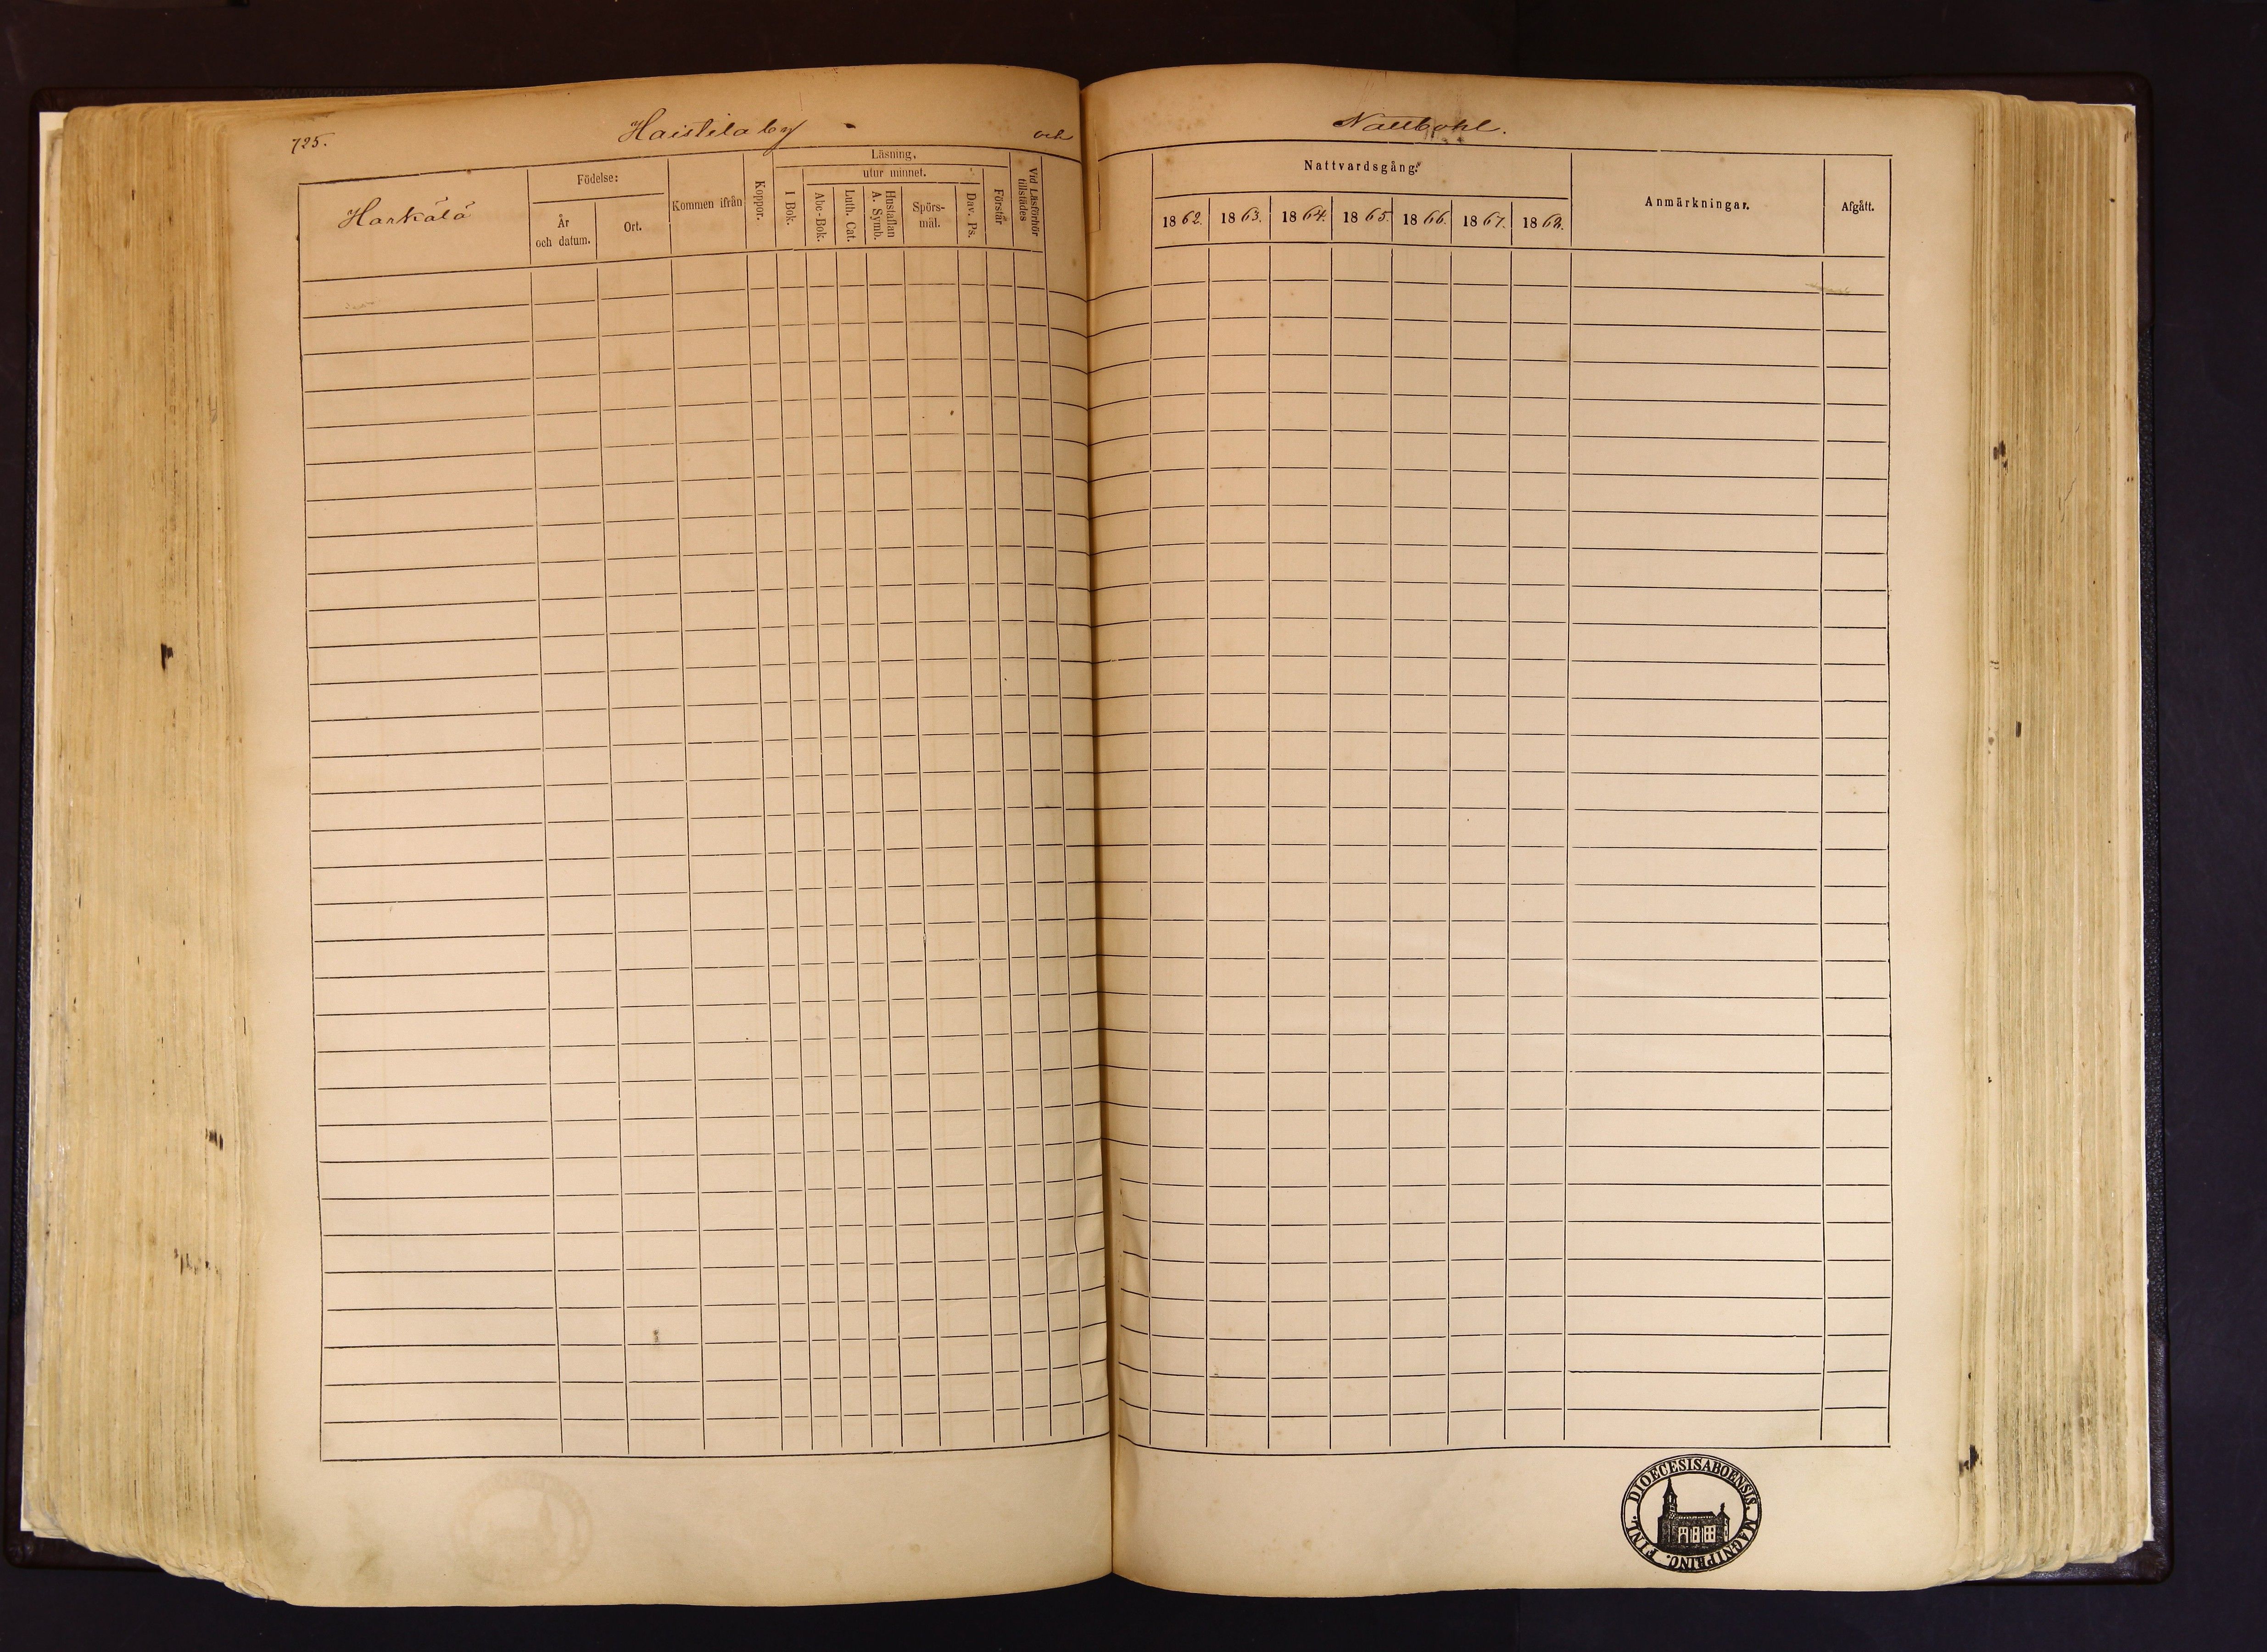 725.
Haistila by
och
Nattbohl.
Harkälä
Födelse:
År
och datum.
Ort.
Kommen ifrån
Koppor.
Läsning.
utur minnet.
I Bok.
Abc-Bok.
Luth. Cat.
Hustaflan
A. Symb.
Spörs-
mål.
Dav. Ps.
Förstår
Vid Läsförhör
tillstädes
Nattvardsgång:
1862.
1863.
1864.
1865.
1866.
1867.
1868.
Anmärkningar.
Afgått.
DIOECESIS ABOENSIS. MAGNI PRINC. FINL.